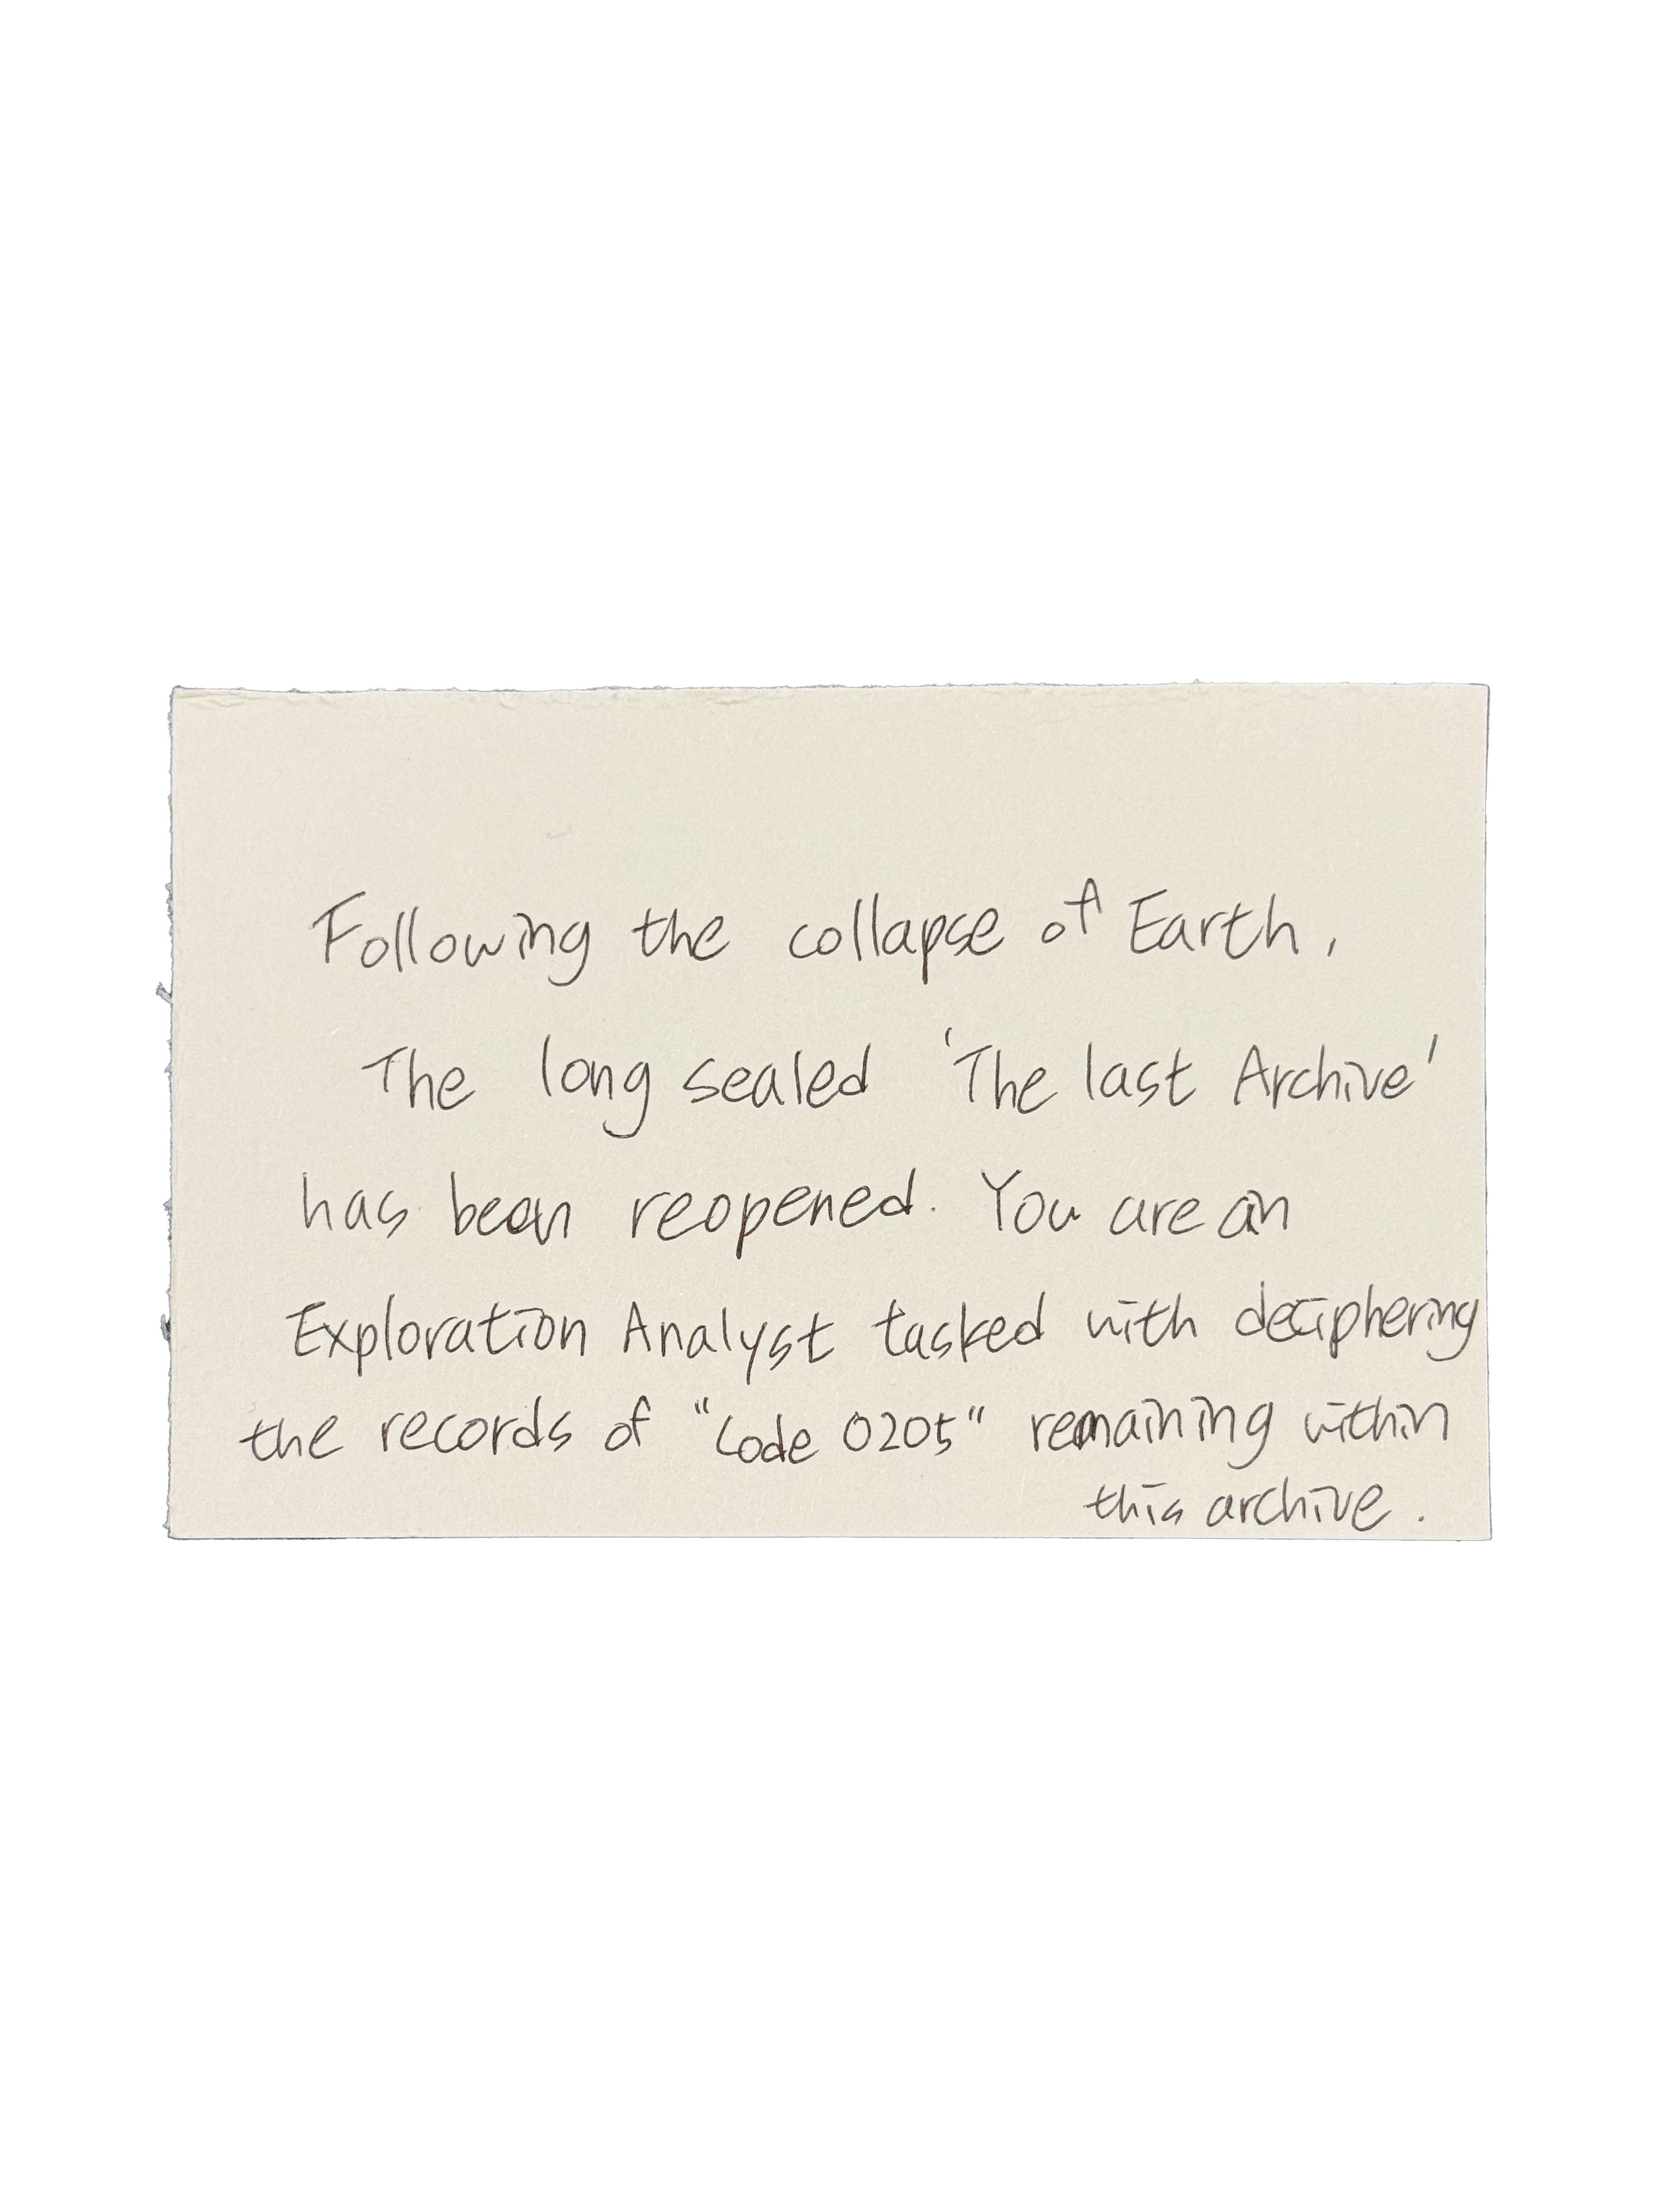 Following the collapse of Earth,
The long sealed 'The last Archive'
has been reopened. You are an
Exploration Analyst tasked with deciphering
the records of "Code 0205" remaining within
this archive.